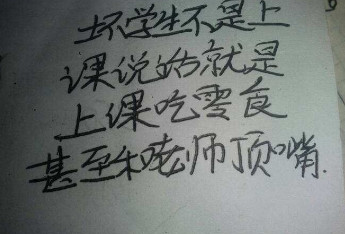 坏学生不是上
课说话就是
上课吃零食
甚至和老师顶嘴.